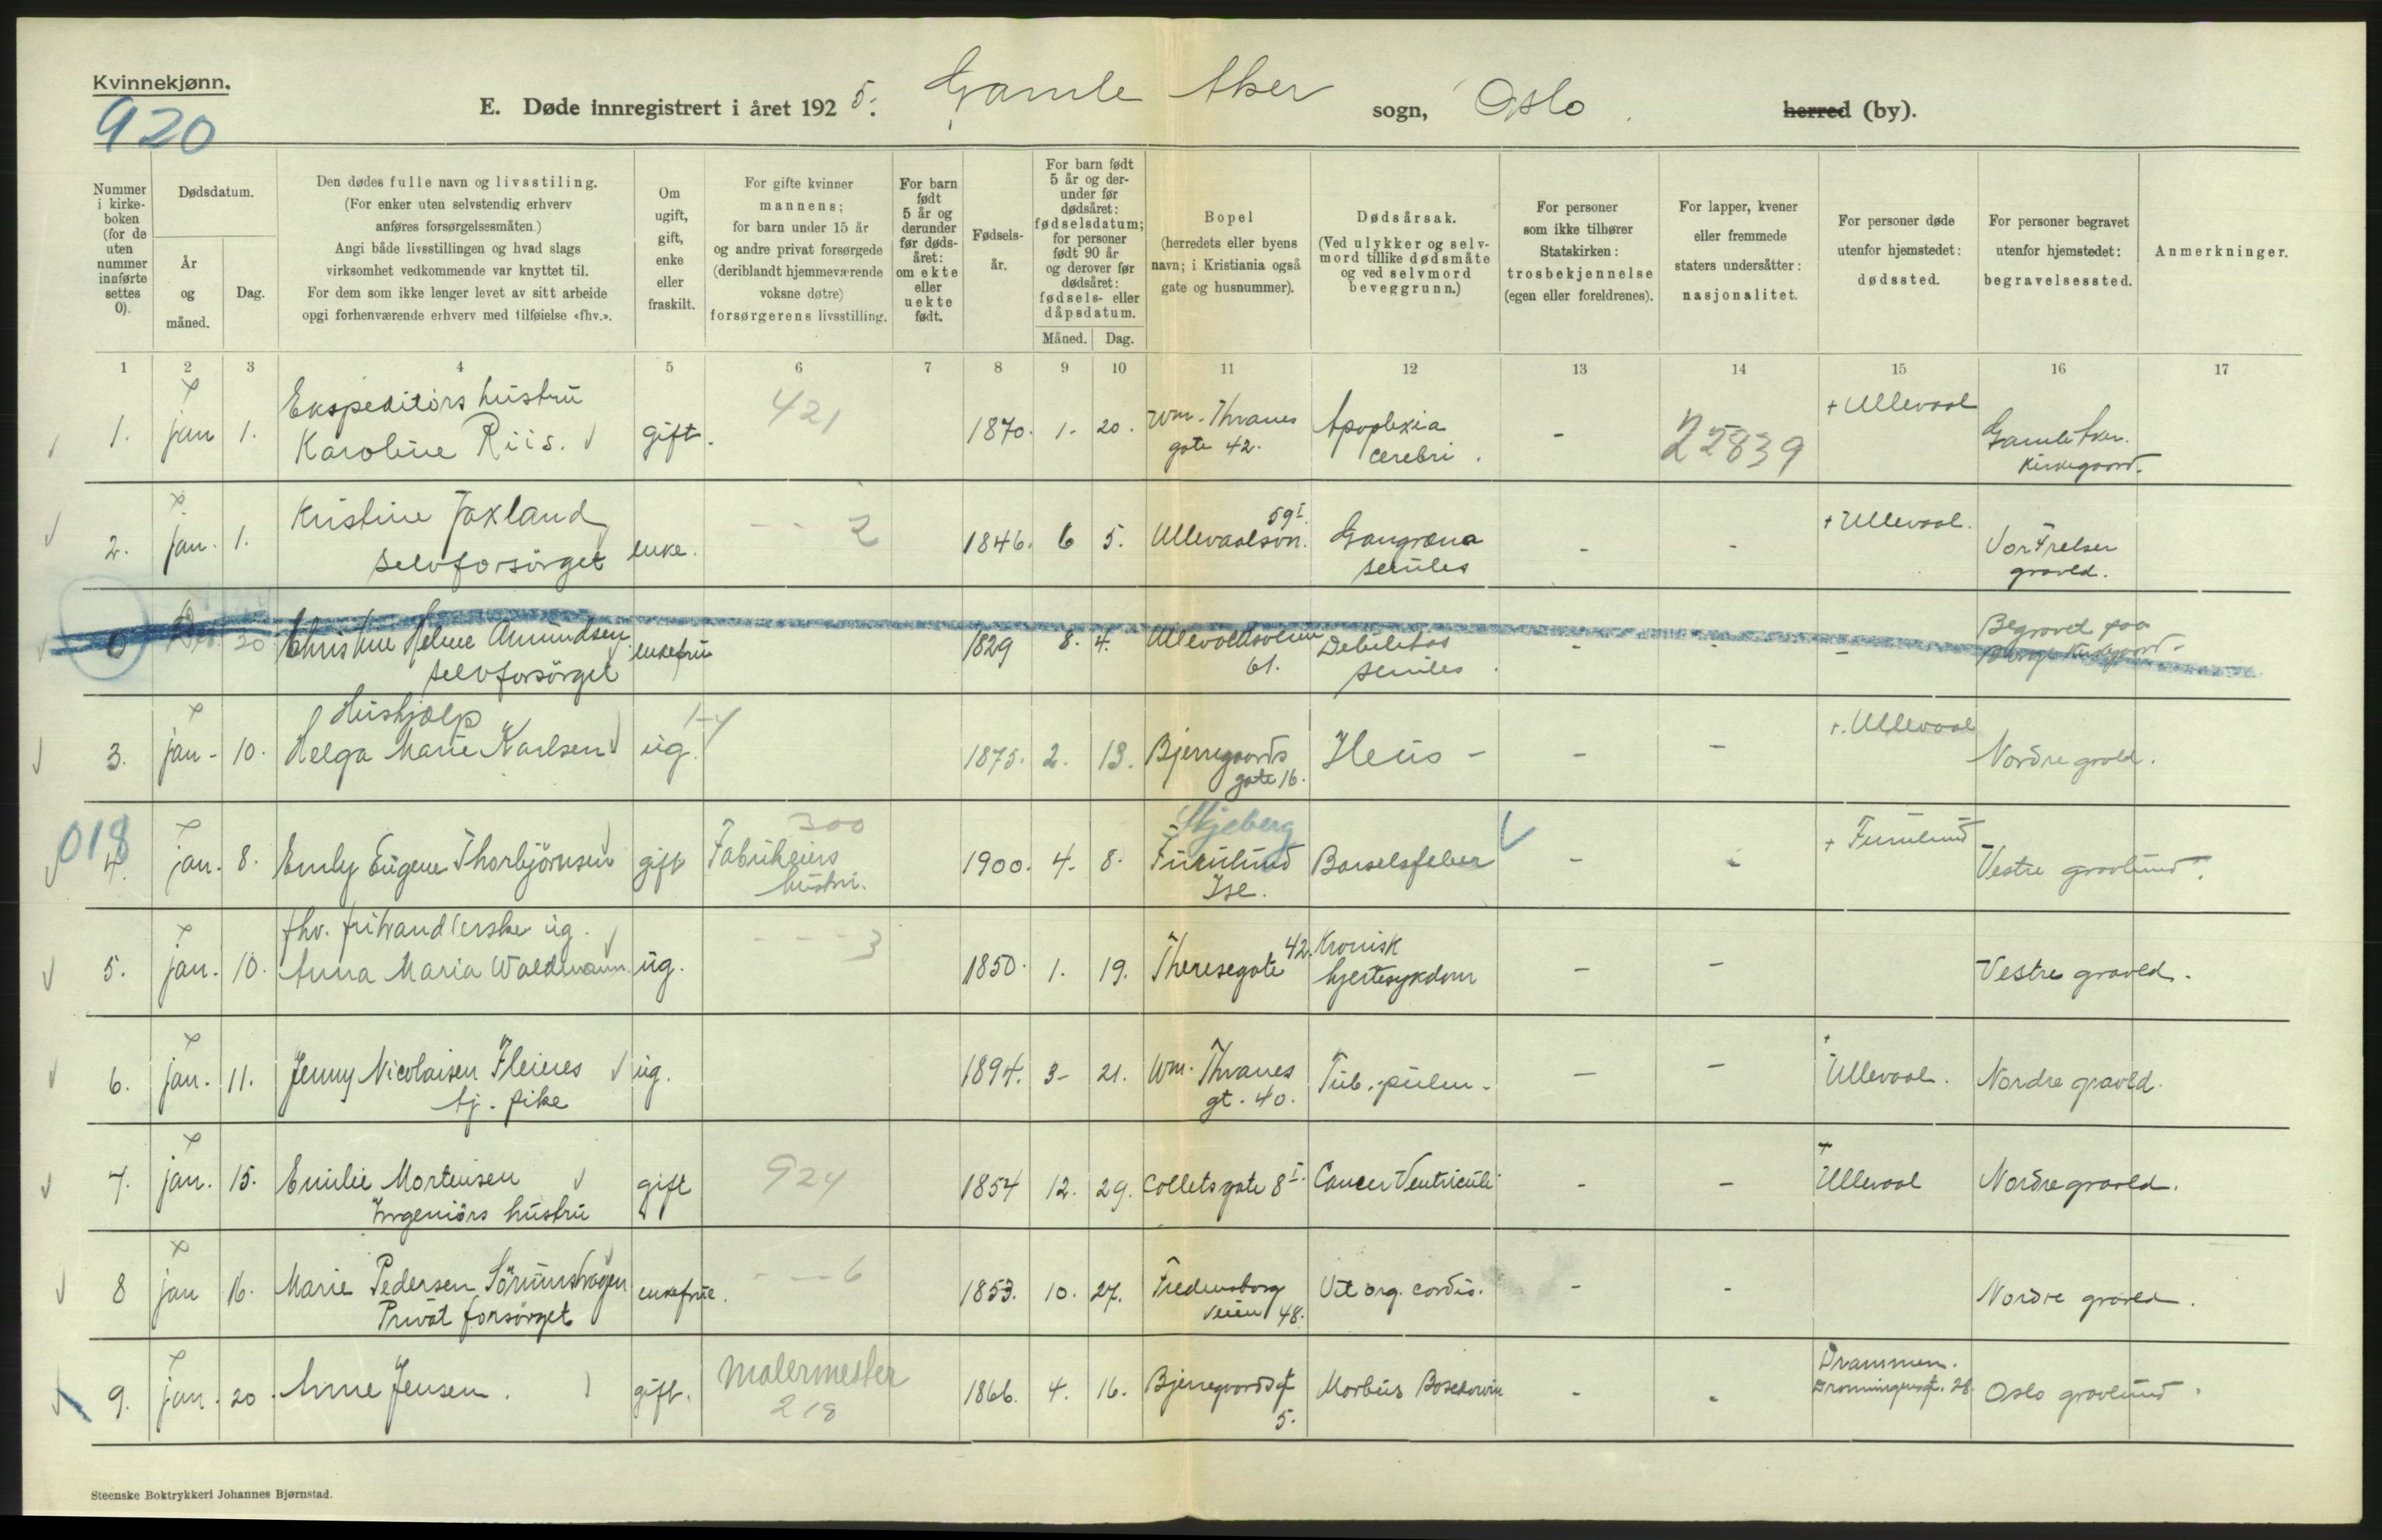 Kvinnekjønn.
920
E. Døde innregistrert i året 1925. Gamle Aker sogn, Oslo herred (by).
Nummer i kirkeboken (for de uten nummer innførte settes 0).
Dødsdatum.
År og måned.
Dag.
Den dødes fulle navn og livsstiling.
(For enker uten selvstendig erhverv
anføres forsørgelsesmåten.)
Angi både livsstillingen og hvad slags
virksomhet vedkommende var knyttet til.
For dem som ikke lenger levet av sitt arbeide
opgi forhenværende erhverv med tilføielse «fhv.».
Om ugift, gift, enke eller fraskilt.
For gifte kvinner
mannens;
for barn under 15 år
og andre privat forsørgede
(deriblandt hjemmeværende
voksne døtre)
forsørgerens livsstilling.
For barn født 5 år og derunder før dødsåret: om ekte eller uekte født.
Fødselsår.
For barn født 5 år og derunder før dødsåret: fødselsdatum; for personer født 90 år og derover før dødsåret: fødsels- eller dåpsdatum.
Måned. Dag.
Bopel
(herredets eller byens
navn; i Kristiania også
gate og husnummer).
Dødsårsak.
(Ved ulykker og selvmord tillike dødsmåte og ved selvmord beveggrunn.)
For personer
som ikke tilhører
Statskirken:
trosbekjennelse
(egen eller foreldrenes).
For lapper, kvener
eller fremmede
staters undersåtter:
nasjonalitet.
For personer døde
utenfor hjemstedet:
dødssted.
For personer begravet
utenfor hjemstedet:
begravelsessted.
Anmerkninger.
1 2 3 4 5 6 7 8 9 10 11 12 13 14 15 16 17
Ekspeditørs hustru 421 + Ullevaal
1. jan 1. Karoline Riis. gift. 1870. 1. 20. Wm. Thranes gate 42. Apoplexia cerebri. - 22839 Gamle Aker kirkegaard.
2. jan. 1. Kristine Foxland selvforsörget enke. 2 1846. 6 5. Ullevaalsvn. 59 I. Gangræna seniles - - + Ullevaal. Vor Frelser gravld.
0 30 Christine Helene Amundsen selvforsörget enkefru 1829 8. 4. Ullevoldsveien 61. Debilitas seniles. - - - Begravet paa
Hushjælp
3. jan - 10. Helga Marie Karlsen ug. 1875. 2. 13. Bjerregaards gate 16. Ileus - - - +. Ullevaal Nordre gravld.
018
4. jan. 8. Emly Eugene Thorbjörnsen gift 300 Fabrikeiers hustru. 1900. 4. 8. Skjeberg Furulund Ise. Barselsfeber - - + Furulund Vestre gravlund.
fhv. ug.
5. jan. 10. Anna Maria Waldmann ug. 3 1850. 1. 19. Theresegate 42. Kronisk hjertesykdom - - Vestre gravld.
6. jan. 11. Jenny Nicolaisen Fleines tj. pike ug. 1894. 3- 21. Wm. Thranes gt. 40. Tub. pulm. - - + Ullevaal. Nordre gravld.
7. jan. 15. Emilie Mortensen Ingeniörs hustru gift 924 1854 12. 29. Collets gate 8 I. Cancer Ventriculi - - + Ullevaal Nordre gravld.
8 jan 16. Marie Pedersen Sörumshagen Privat forsörget enkefrue. 6 1853. 10. 27. Fredensborg veien 48. Vit. org. cordis. - - Nordre gravld.
9. jan. 20. Anne Jensen. gift. Malermester 218 1866. 4. 16. Bjerregaardsgt 5. Morbus - - Drammen. Dronningensgt. 28. Oslo gravlund.
Steenske Boktrykkeri Johannes Bjørnstad.